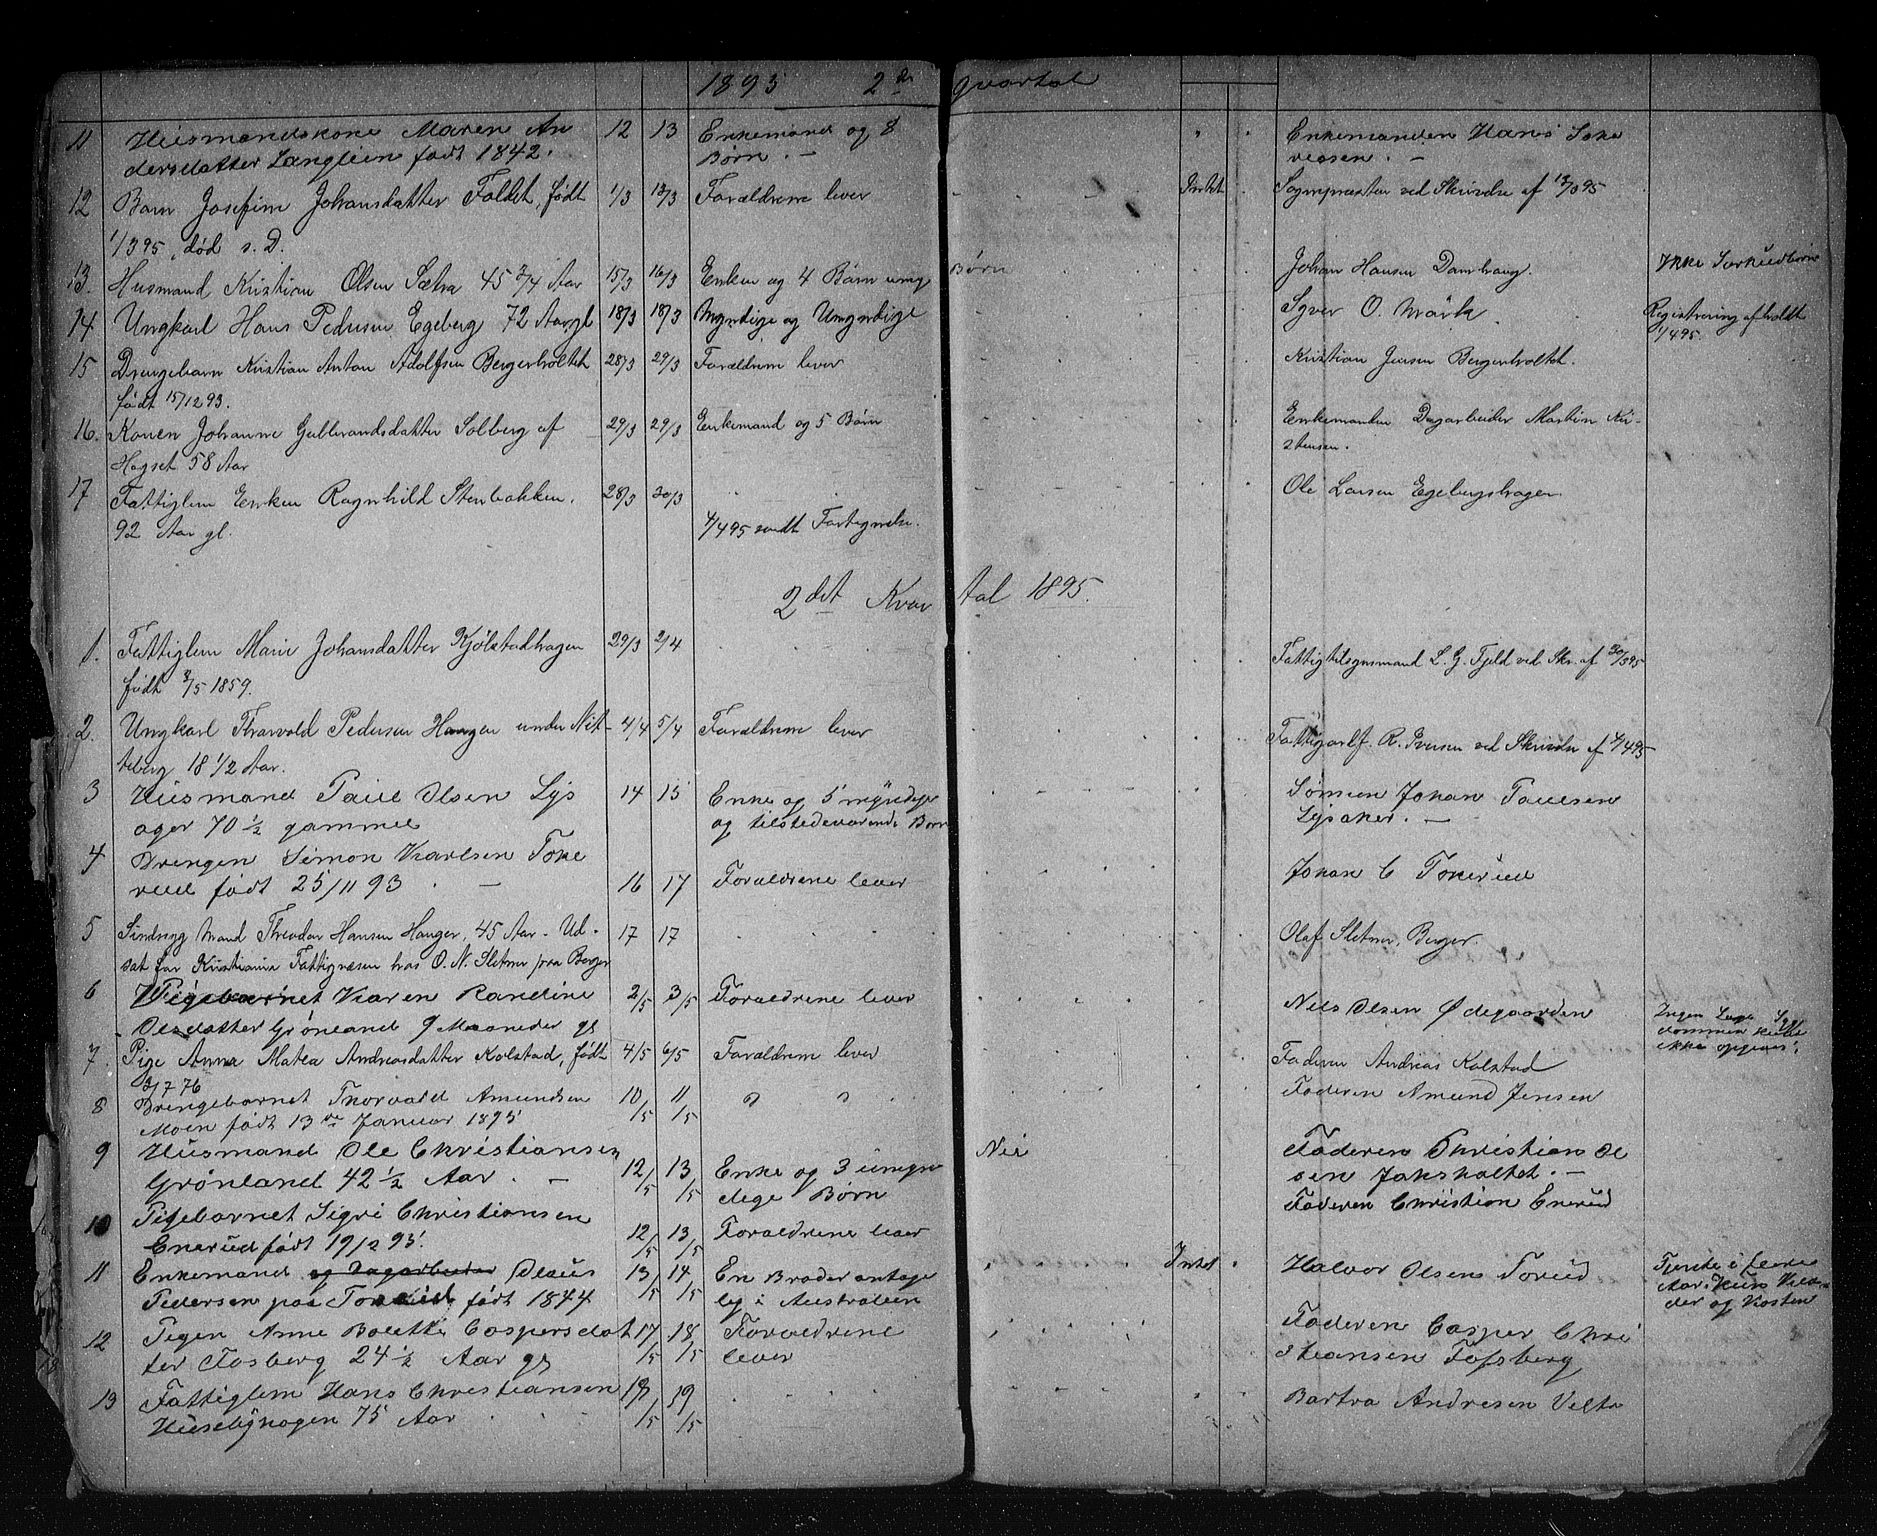 1895 2de Qvartal
11 Husmandskone Maren An 12 13 Enkemand og 8 Enkemanden Hans
dersdatter Langlien født 1842. Børn. —
12 Barn Josefine Johansdatter Faldet, født 1/3 13/3 Forældrene lever Intet Sognpræsten ved Skrivelse af 13/3 95
1/3 95, død s. D.
13. Husmand Kristian Olsen Sætra 45 3/4 Aar 15/3 16/3 Enken og 4 Børn umg Børn Johan Hansen Damhaug. Ikke Særkuldbørn
14 Ungkarl Hans Pedersen Egeberg 72 Aar gl 18/3 18/3 Myndige og Umyndige Syver O. Mörk. Registrering afholdt
1/4 95.
15 Drengebarn Kristian Anton Adolfsen Bergerholtet 28/3 29/3 Forældrene lever Kristian Jensen Bergerholtet.
født 15/12 93.
16. Konen Johanne Gulbrandsdatter Solberg af 29/3 29/3 Enkemand og 5 Børn Enkemanden Dagarbeider Martin Kri-
Hogset 58 Aar stensen.
17 Fattiglem Enken Ragnhild Stenbakken. 28/3 30/3 Ole Larsen Egebergshagen
92 Aar gl. 4/4 95 sendt Fortegnelse.
2det Kvartal 1895.
1. Fattiglem Marie Johansdatter Kjølstadhagen 29/3 2/4 Fattigtilsynsmand L. G. Fjeld ved Skr. af 30/3 95
født 3/5 1859.
2. Ungkarl Thorvald Pedersen Haugen under Nit- 4/4 5/4 Forældrene lever Fattigforf. R. Iversen ved Skrivelse af 4/4 95
teberg 18 1/2 Aar.
3 Husmand Paul Olsen Lys 14 15 Enke og 5 myndige Sønnen Johan Paulsen
ager 70 ½ gammel og tilstedeværende Børn Lysaker. —
4 Drengen Simon Karlsen Toke
rud født 25/11 93. — 16 17 Forældrene lever Johan C Tokerud
5 Sindssyg Mand Theodor Hansen Hanger, 45 Aar - Ud- 17 17 Olaf Sletner, Berger.
sat for Kristiania Fattigvæsen hos O. N. Sletner paa Berger
6 Pigebarnet Karen Randine 2/5 3/5 Forældrene lever Nils Olsen Ødegaarden Ingen Læge Syg
Olsdatter Grønland 9 Maaneder gl dommen kunde
ikke opgives.
7. Pige Anna Matea Andreasdatter Kolstad, født 4/5 6/5 Forældrene lever Faderen Andreas Kolstad
2/7 76
8 Drengebarnet Thorvald Amundsen 10/5 11/5 " " Faderen Amund Jensen
Moen født 13de Januar 1895
9 Husmand Ole Christiansen Nei Faderen Christian Ol
Grönland 42 ½ Aar. — 12/5 13/5 Enke og 3 umyn sen Jahsholtet. —
dige Børn
10 Pigebarnet Sigri Christiansen Faderen Christian Enerud
Enerud født 19/2 95. 12/5 13/5 Forældrene lever
11 Enkemand og Dagarbeider Olaus 13/5 14/5 En Broder antage Intet Halvor Olsen Torud Tjente i flere
Pedersen paa Torud født 1844 lig i Australien Aar Kun Klæ
der og Kosten
12 Pigen Anne Bolette Caspersdat 17/5 18/5 Forældrene Faderen Casper Chri
ter Fosberg 24 ½ Aar gl lever stiansen Fossberg
13 Fattiglem Hans Christiansen 18/5 19/5 Andresen Velta
Husebyhagen 75 Aar